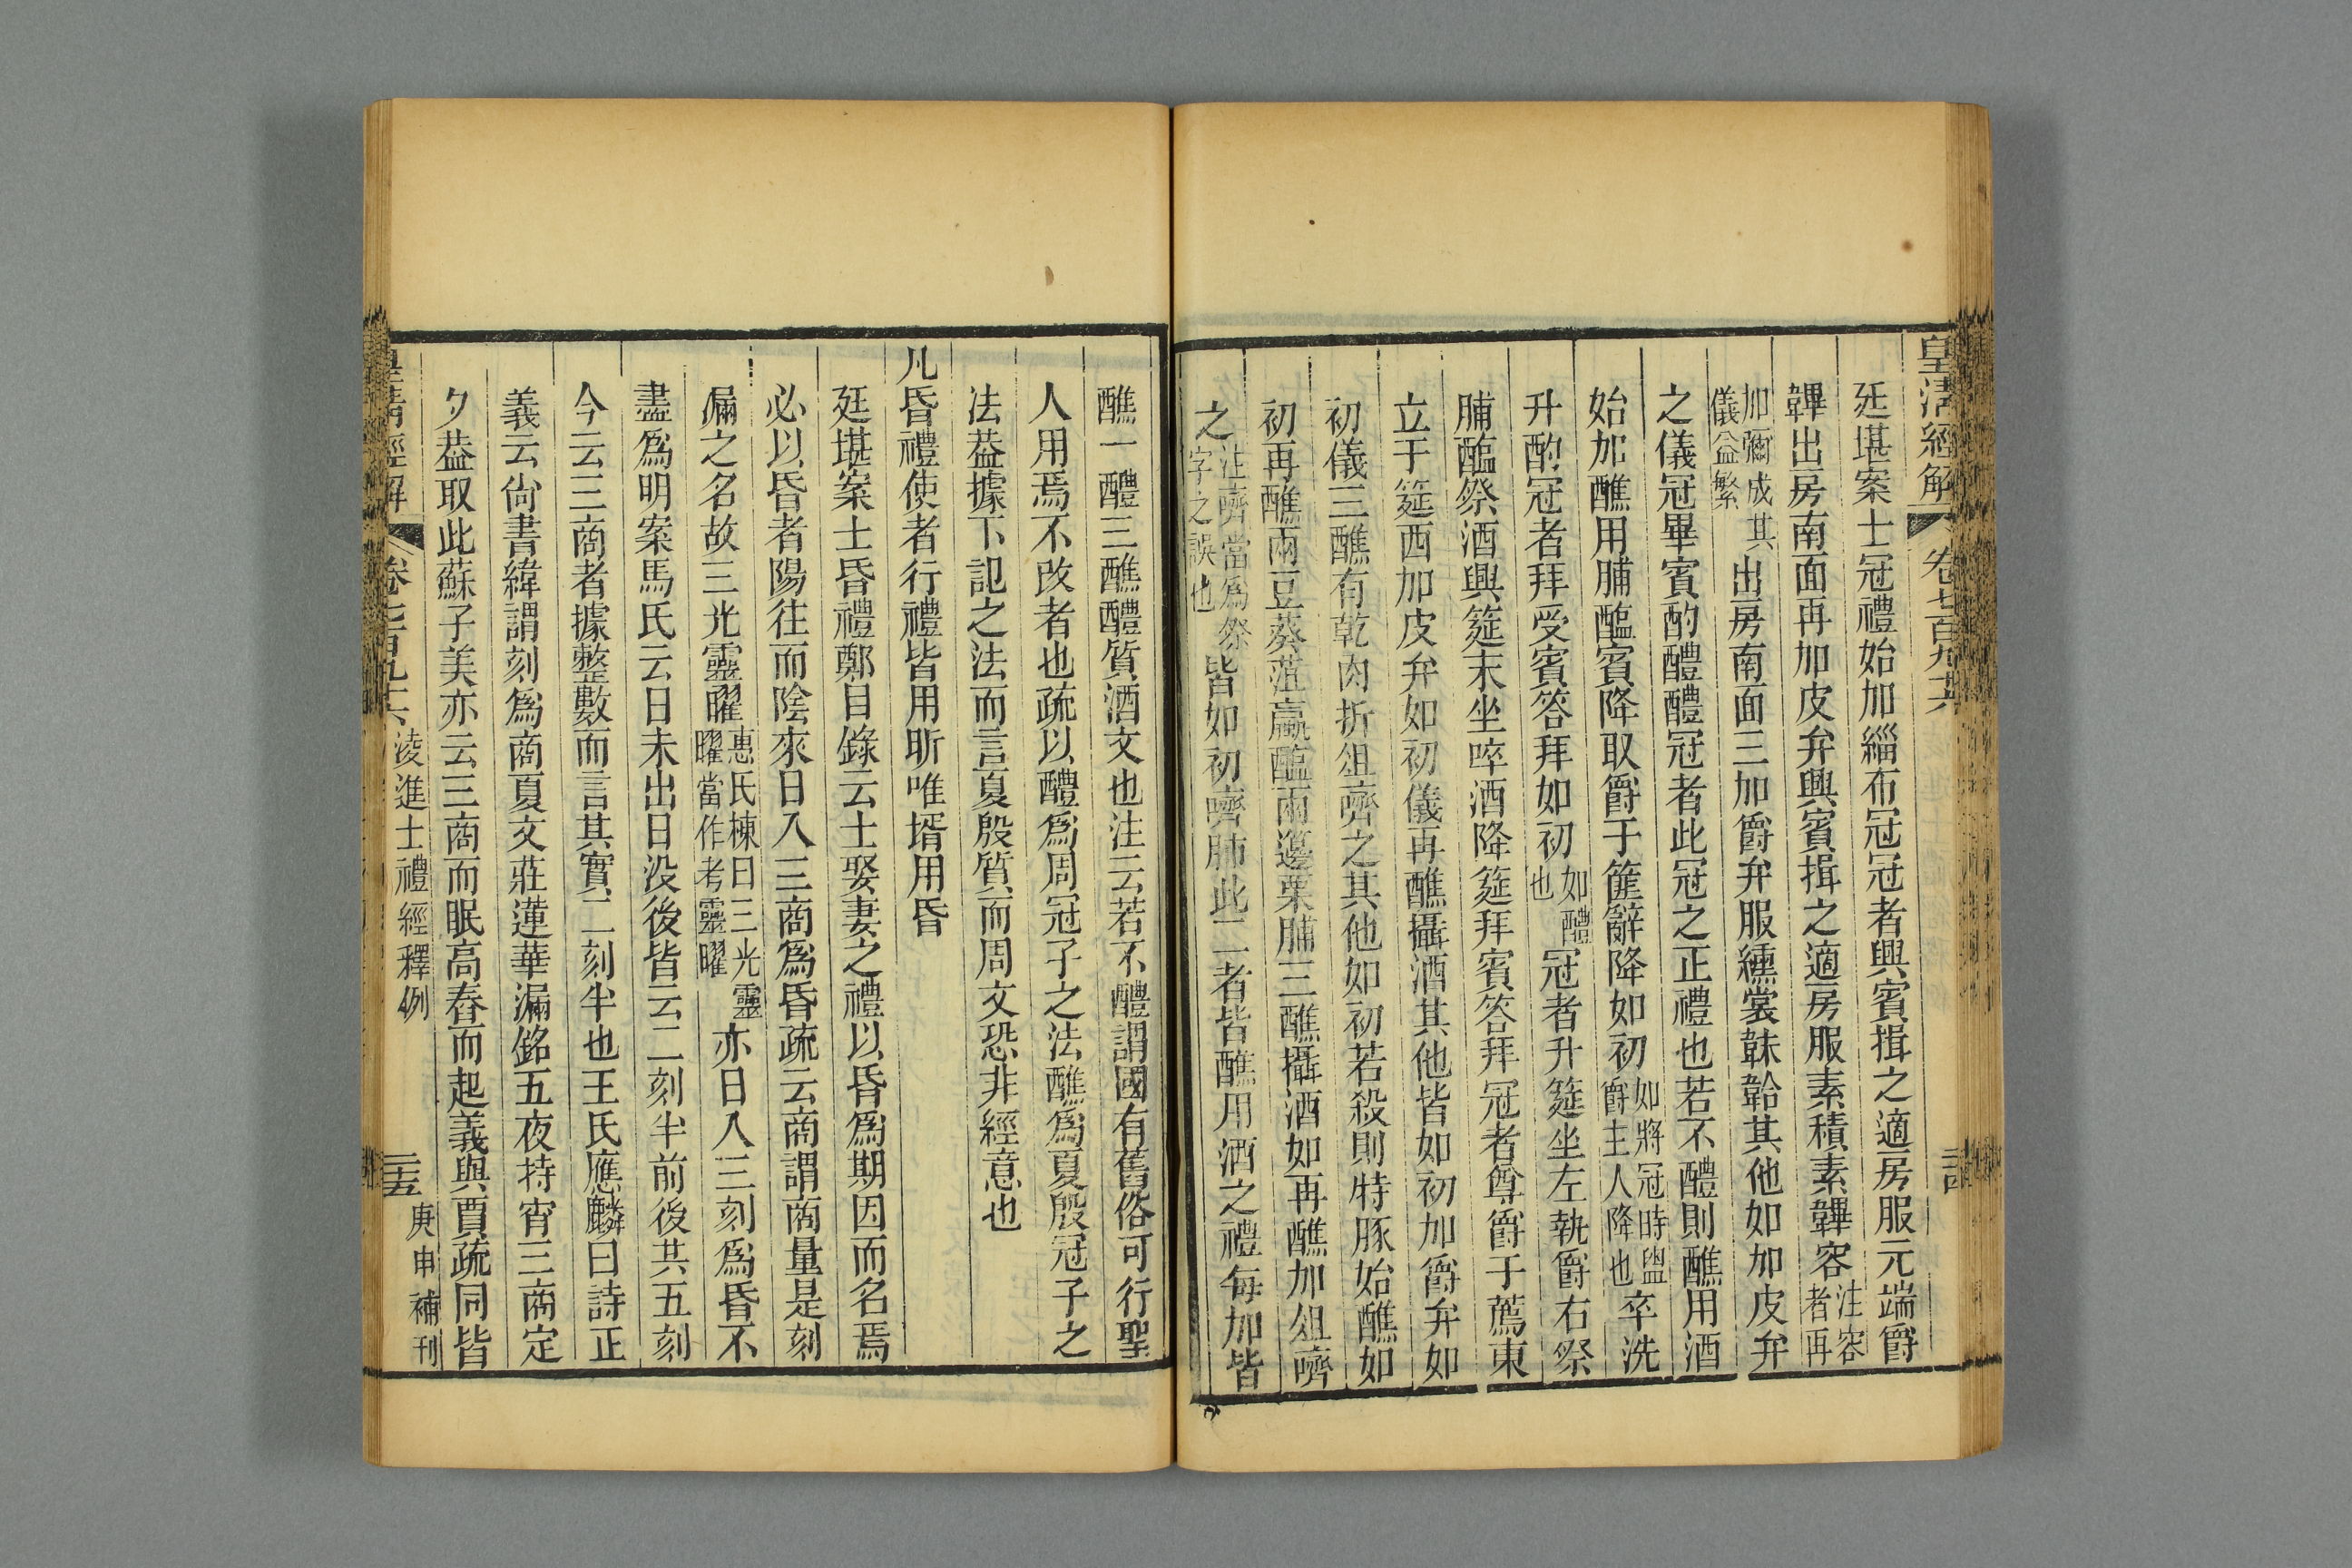 皇清經解 卷七百九十六
廷堪案士冠禮始加緇布冠冠者興賓揖之適房服元端爵
韠出房南面再加皮弁興賓揖之適房服素積素韠容注容者再
加彌成其儀益繁出房南面三加爵弁服纁裳韎韐其他如加皮弁
之儀冠畢賓酌醴醴冠者此冠之正禮也若不醴則醮用酒
始加醮用脯醢賓降取爵于篚辭降如初如將冠時盥爵主人降也卒洗
升酌冠者拜受賓答拜如初如醴也冠者升筵坐左執爵右祭
脯醢祭酒興筵末坐啐酒降筵拜賓答拜冠者奠爵于薦東
立于筵西加皮弁如初儀再醮攝酒其他皆如初加爵弁如
初儀三醮有乾肉折俎嚌之其他如初若殺則特豚始醮如
初再醮兩豆葵菹蠃醢兩籩栗脯三醮攝酒如再醮加俎嚌
之注嚌當爲祭字之誤也皆如初嚌肺此二者皆醮用酒之禮每加皆
醮一醴三醮醴質酒文也注云若不醴謂國有舊俗可行聖
人用焉不改者也疏以醴爲周冠子之法醮爲夏殷冠子之
法葢據下記之法而言夏殷質而周文恐非經意也
凡昏禮使者行禮皆用昕唯壻用昏
廷堪案士昏禮鄭目錄云士娶妻之禮以昏爲期因而名焉
必以昏者陽往而陰來日入三商爲昏疏云商謂商量是刻
漏之名故三光靈曜惠氏棟曰三光靈曜當作考靈曜亦日入三刻爲昏不
盡爲明案馬氏云日未出日没後皆云二刻半前後共五刻
今云三商者據整數而言其實二刻半也王氏應麟曰詩正
義云尙書緯謂刻爲商夏文莊蓮華漏銘五夜持宵三商定
夕葢取此蘇子美亦云三商而眠高舂而起義與賈疏同皆
皇清經解 卷七百九十六 淩進士禮經釋例 二十五 庚申補刊